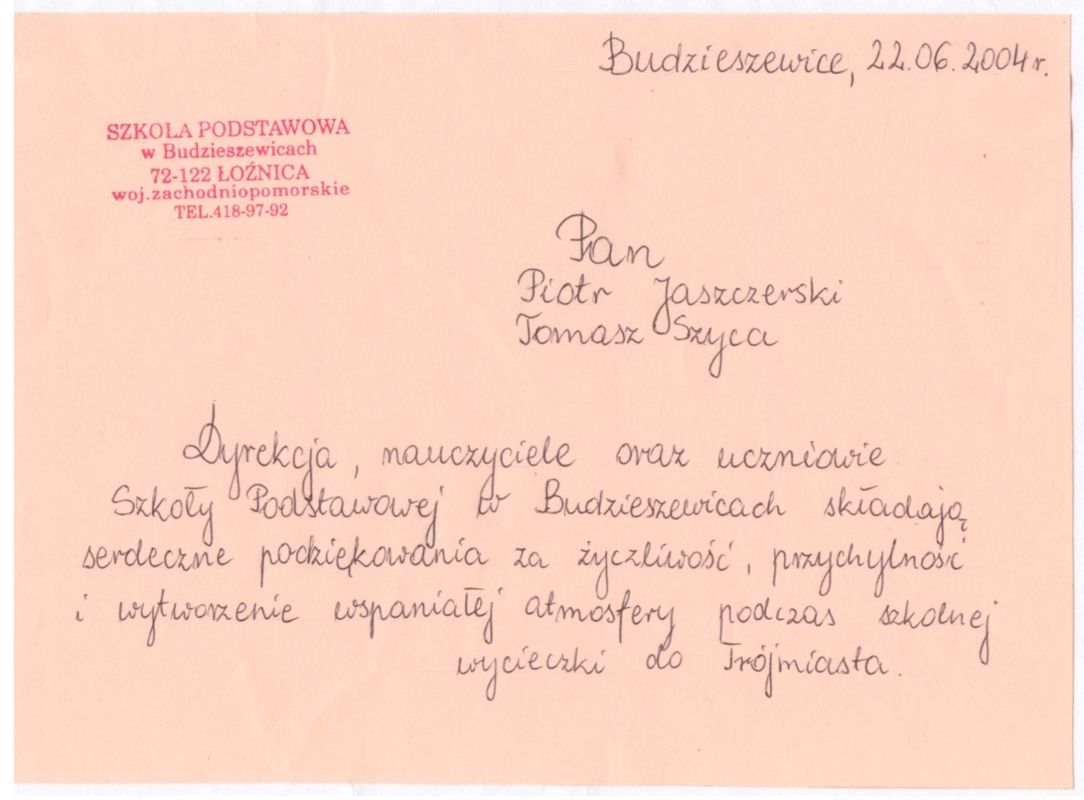 Budzieszewice, 22.06.2004 r.
SZKOŁA PODSTAWOWA
w Budzieszewicach
72-122 ŁOŹNICA
woj.zachodniopomorskie
TEL.418-97-92
Pan
Piotr Jaszczerski
Tomasz Szyca
Dyrekcja, nauczyciele oraz uczniowie
Szkoły Podstawowej w Budzieszewicach składają
serdeczne podziękowania za życzliwość, przychylność
i wytworzenie wspaniałej atmosfery podczas szkolnej
wycieczki do Trójmiasta.